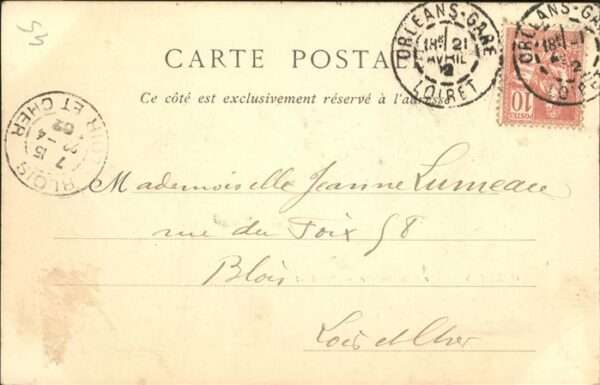 45
CARTE POSTALE
Ce côté est exclusivement réservé à l'adresse
ORLEANS-GARE
18E 21
AVRIL
2
LOIRET
ORLEANS-GARE
18E 21
2
LOIRET
10
POSTES
BLOIS
LOIR ET CHER
7 15
-4
02
Mademoiselle Jeanne Lumeau
rue du Foix 58
Blois
Loir et Cher